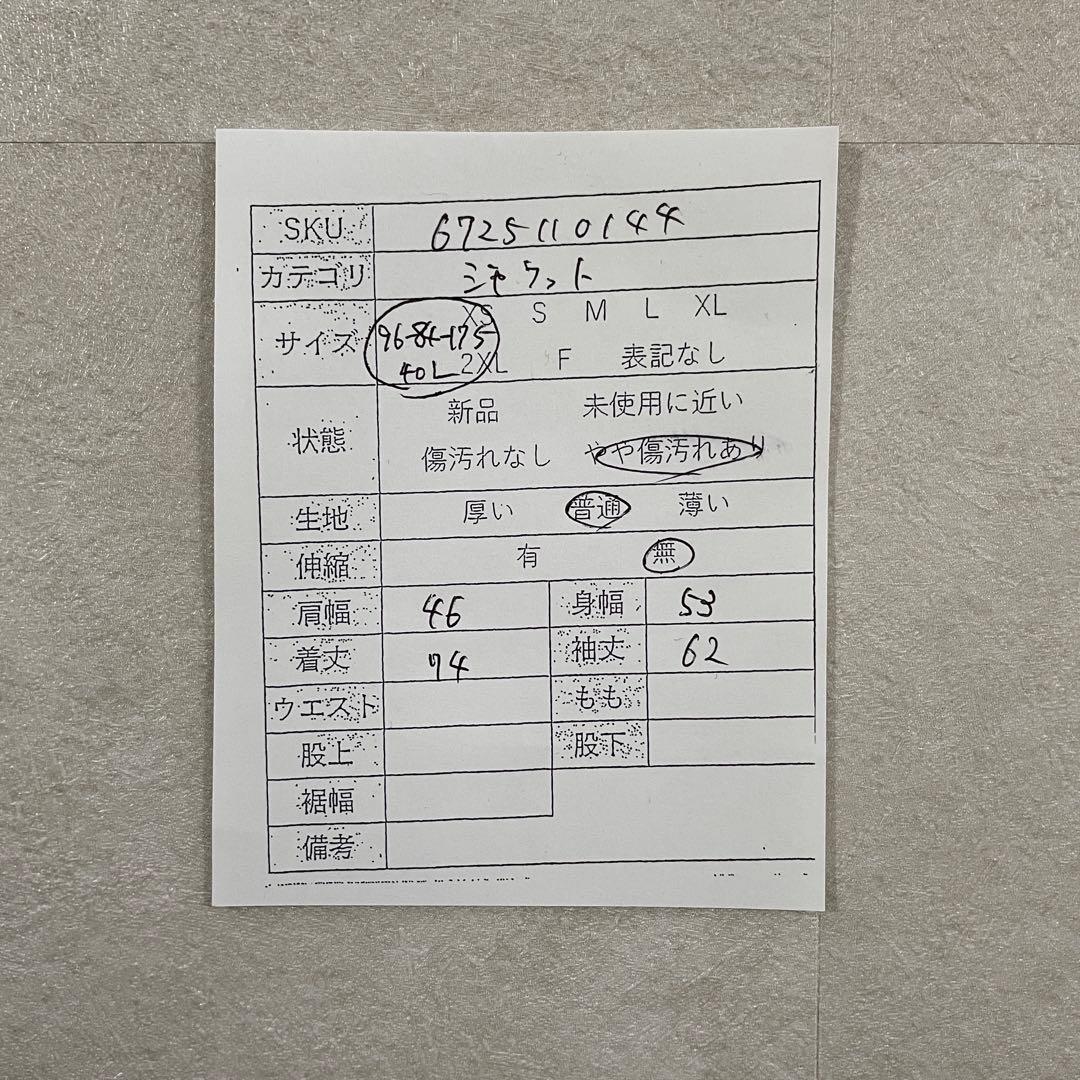 SKU 6725110144
カテゴリ シャケット
サイズ XS S M L XL
96-84-175
40L 2XL F 表記なし
状態 新品 未使用に近い
傷汚れなし やや傷汚れあり
生地 厚い 普通 薄い
伸縮 有 無
肩幅 46 身幅 53
着丈 74 袖丈 62
ウエスト もも
股上 股下
裾幅
備考